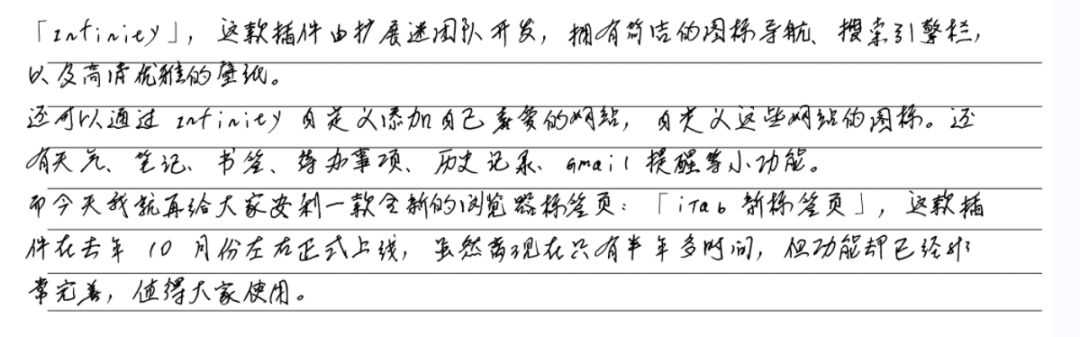 「Infinity」，这款插件由扩展迷团队开发，拥有简洁的图标导航、搜索引擎栏，
以及高清优雅的壁纸。
还可以通过 Infinity 自定义添加自己喜爱的网站，自定义这些网站的图标。还
有天气、笔记、书签、待办事项、历史记录、Gmail 提醒等小功能。
而今天我就再给大家安利一款全新的浏览器标签页：「iTab 新标签页」，这款插
件在去年 10 月份左右正式上线，虽然离现在只有半年多时间，但功能却已经非
常完善，值得大家使用。